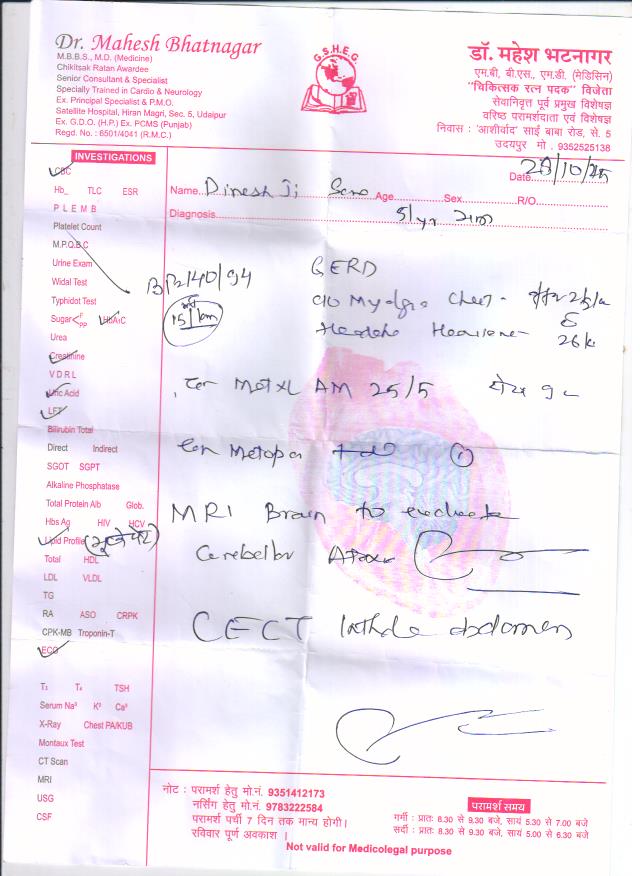 Dr. Mahesh Bhatnagar
M.B.B.S., M.D. (Medicine)
Chikitsak Ratan Awardee
Senior Consultant & Specialist
Specially Trained in Cardio & Neurology
Ex. Principal Specialist & P.M.O.
Satellite Hospital, Hiran Magri, Sec. 5, Udaipur
Ex. G.D.O. (H.P.) Ex. PCMS (Punjab)
Regd. No. : 6501/4041 (R.M.C.)
G.S.H.E.G.
डॉ. महेश भटनागर
एम.बी. बी.एस., एम.डी. (मेडिसिन)
"चिकित्सक रत्न पदक" विजेता
सेवानिवृत पूर्व प्रमुख विशेषज्ञ
वरिष्ठ परामर्शदाता एवं विशेषज्ञ
निवास : 'आशीर्वाद' साई बाबा रोड, से. 5
उदयपुर मो. 9352525138
INVESTIGATIONS
CBC
Hb_ TLC ESR
P L E M B
Platelet Count
M.P.Q.B.C
Urine Exam
Widal Test
Typhidot Test
Sugar F PP HbA1C
Urea
Creatinine
V D R L
Uric Acid
LFT
Bilirubin Total
Direct Indirect
SGOT SGPT
Alkaline Phosphatase
Total Protein Alb Glob.
Hbs Ag HIV HCV
Lipid Profile (भूखे पेट)
Total HDL
LDL VLDL
TG
RA ASO CRPK
CPK-MB Troponin-T
ECG
T3 T4 TSH
Serum Na K Ca
X-Ray Chest PA/KUB
Montaux Test
CT Scan
MRI
USG
CSF
Date
Name Dinesh Ji Age Sex R/O
Diagnosis
GERD
MRI Brain to evaluate
CECT abdomen
नोट : परामर्श हेतु मो.नं. 9351412173
नर्सिंग हेतु मो.नं. 9783222584
परामर्श पर्ची 7 दिन तक मान्य होगी।
रविवार पूर्ण अवकाश ।
परामर्श समय
गर्मी : प्रातः 8.30 से 9.30 बजे, सायं 5.30 से 7.00 बजे
सर्दी : प्रातः 8.30 से 9.30 बजे, सायं 5.00 से 6.30 बजे
Not valid for Medicolegal purpose